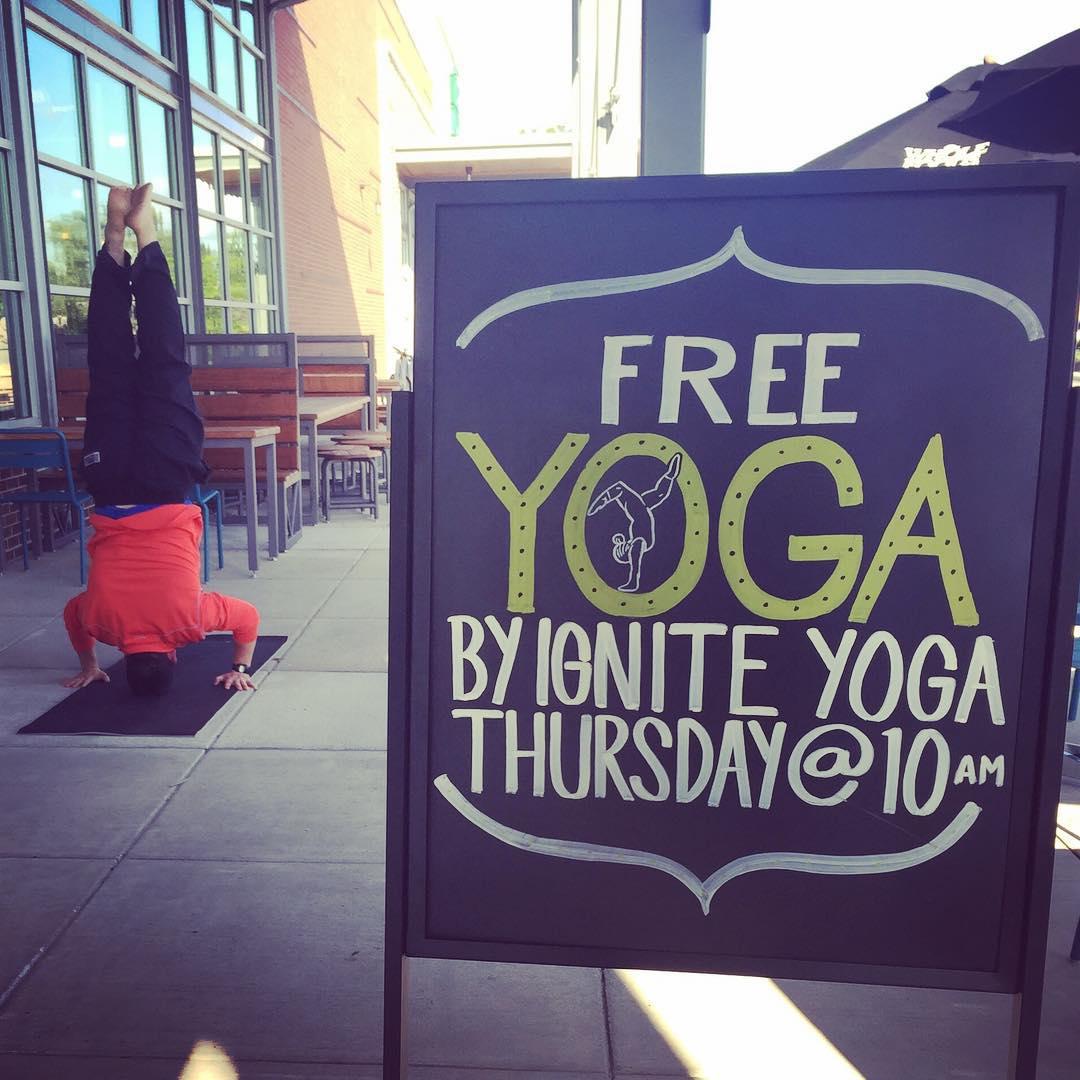 WHOLE
FREE
YOGA
BY IGNITE YOGA
THURSDAY @ 10 AM